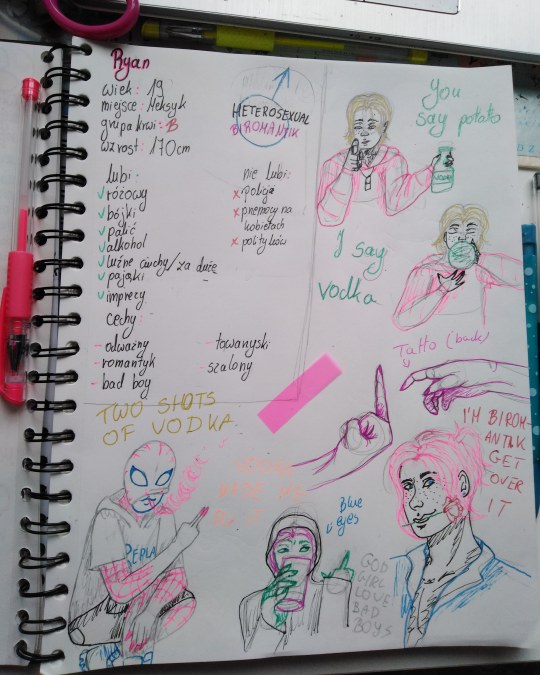 Ryan
wiek: 19
miejsce: Meksyk
grupa krwi: B
wzrost: 170cm
HETEROSEXUAL
BIROMANTIK
lubi:
różowy
bójki
palić
alkohol
luźne ciuchy/za duże
pająki
imprezy
nie lubi:
policji
przemocy na
kobietach
polityków
cechy:
- odważny
- romantyk
- bad boy
- towarzyski
- szalony
You
say potato
VODKA
I say
vodka
Tatto (back)
TWO SHOTS
OF VODKA
I'M BIROM-
ANTIK
GET
OVER
IT
Blue
eyes
GOD
GIRL
LOVE
BAD
BOYS